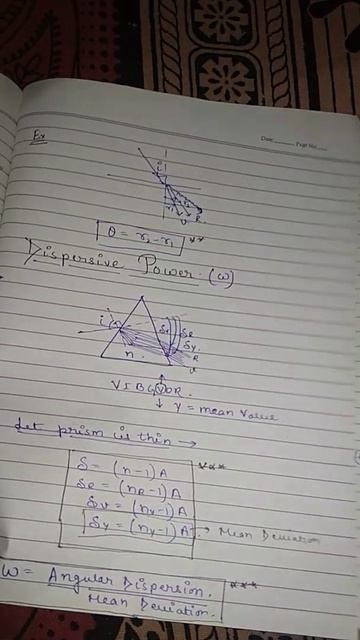 Ex
Date______ Page No.____
i
r₂
r₁
R
V
θ = r₂ - r₁ **
Dispersive Power. (ω)
i
δv δR
δy
R
n.
V
V I B G Y O R.
↓ y = mean value
Let prism is thin →
δ = (n-1)A ***
δR = (nR-1)A
δv = (nv-1)A
δy = (ny-1)A → Mean Deviation
ω = Angular Dispersion. ***
Mean Deviation.